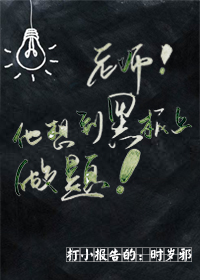 老师！
他想到黑板上
做题！
打小报告的：时岁邪